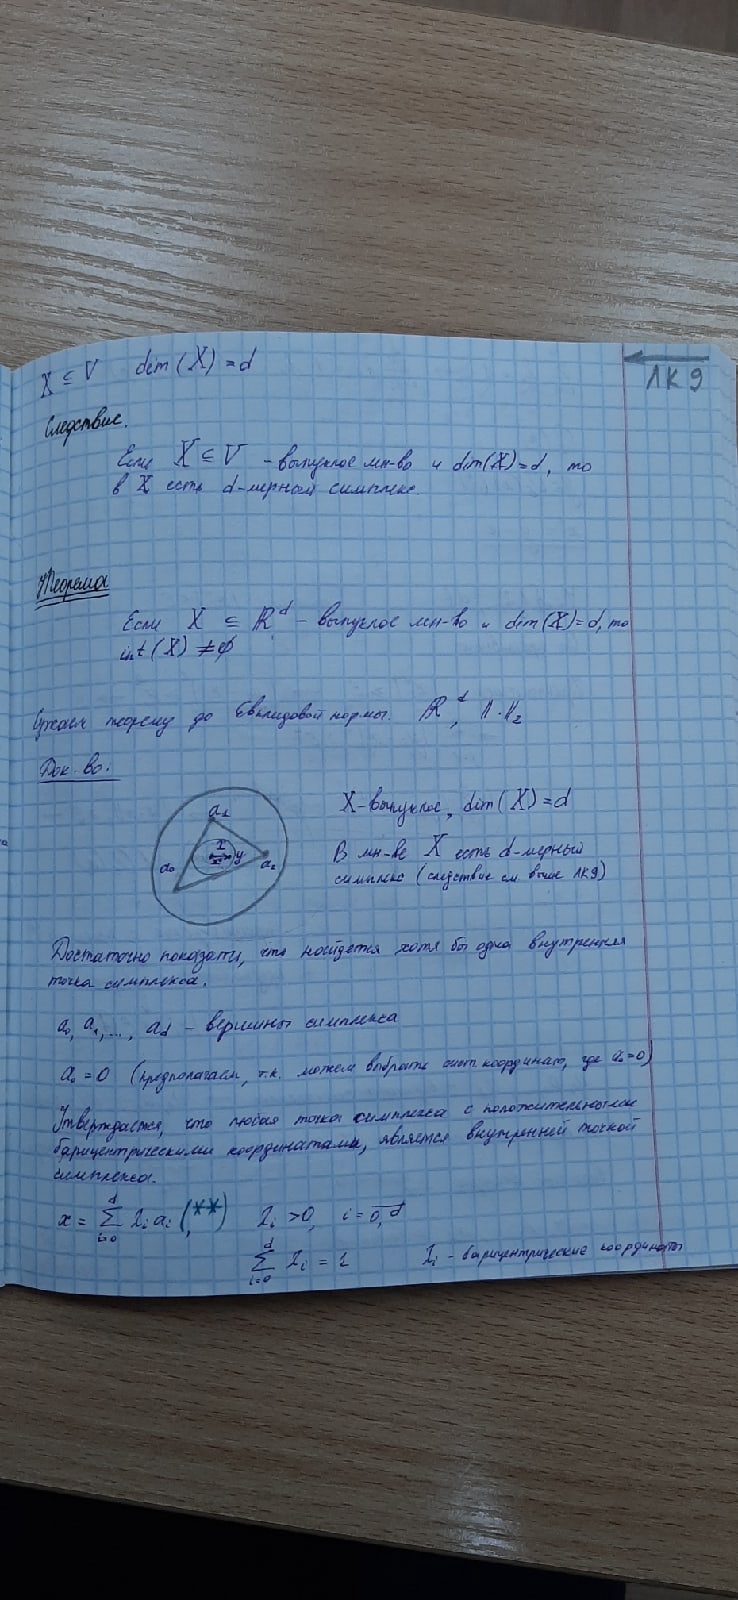 X ⊆ V dim(X) = d
ЛК 9
Следствие.
Если X ⊆ V – выпуклое мн-во и dim(X)=d, то
в X есть d-мерный симплекс.
Теорема
Если X ⊆ ℝᵈ – выпуклое мн-во и dim(X)=d, то
int(X) ≠ ∅
теорему до Евклидовой нормы. ℝᵈ, ‖·‖₂
Док-во:
X-выпуклое, dim(X)=d
a₁
a₀ x y a₂
В мн-ве X есть d-мерный
симплекс (следствие см. выше ЛК9)
Достаточно показать, что найдется хотя бы одна внутренняя
точка симплекса.
a₀, a₁, ..., a_d – вершины симплекса
a₀ = 0 (предполагаем, т.к. можем выбрать сист. координат, где a₀=0)
Утверждается, что любая точка симплекса с положительными
барицентрическими координатами, является внутренней точкой
симплекса.
x = ∑_{i=0}^{d} λᵢ aᵢ (**) λᵢ > 0, i = \overline{0, d}
∑_{i=0}^{d} λᵢ = 1 λᵢ - барицентрические координаты